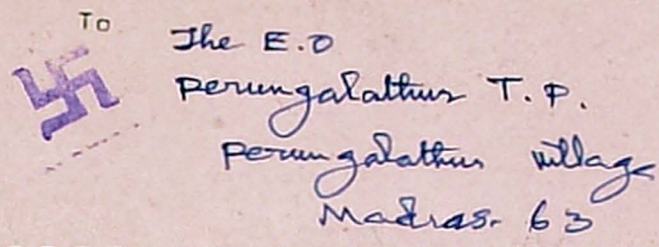 To
The E.O
Perungalathur T.P.
Perungalathur village
Madras. 63